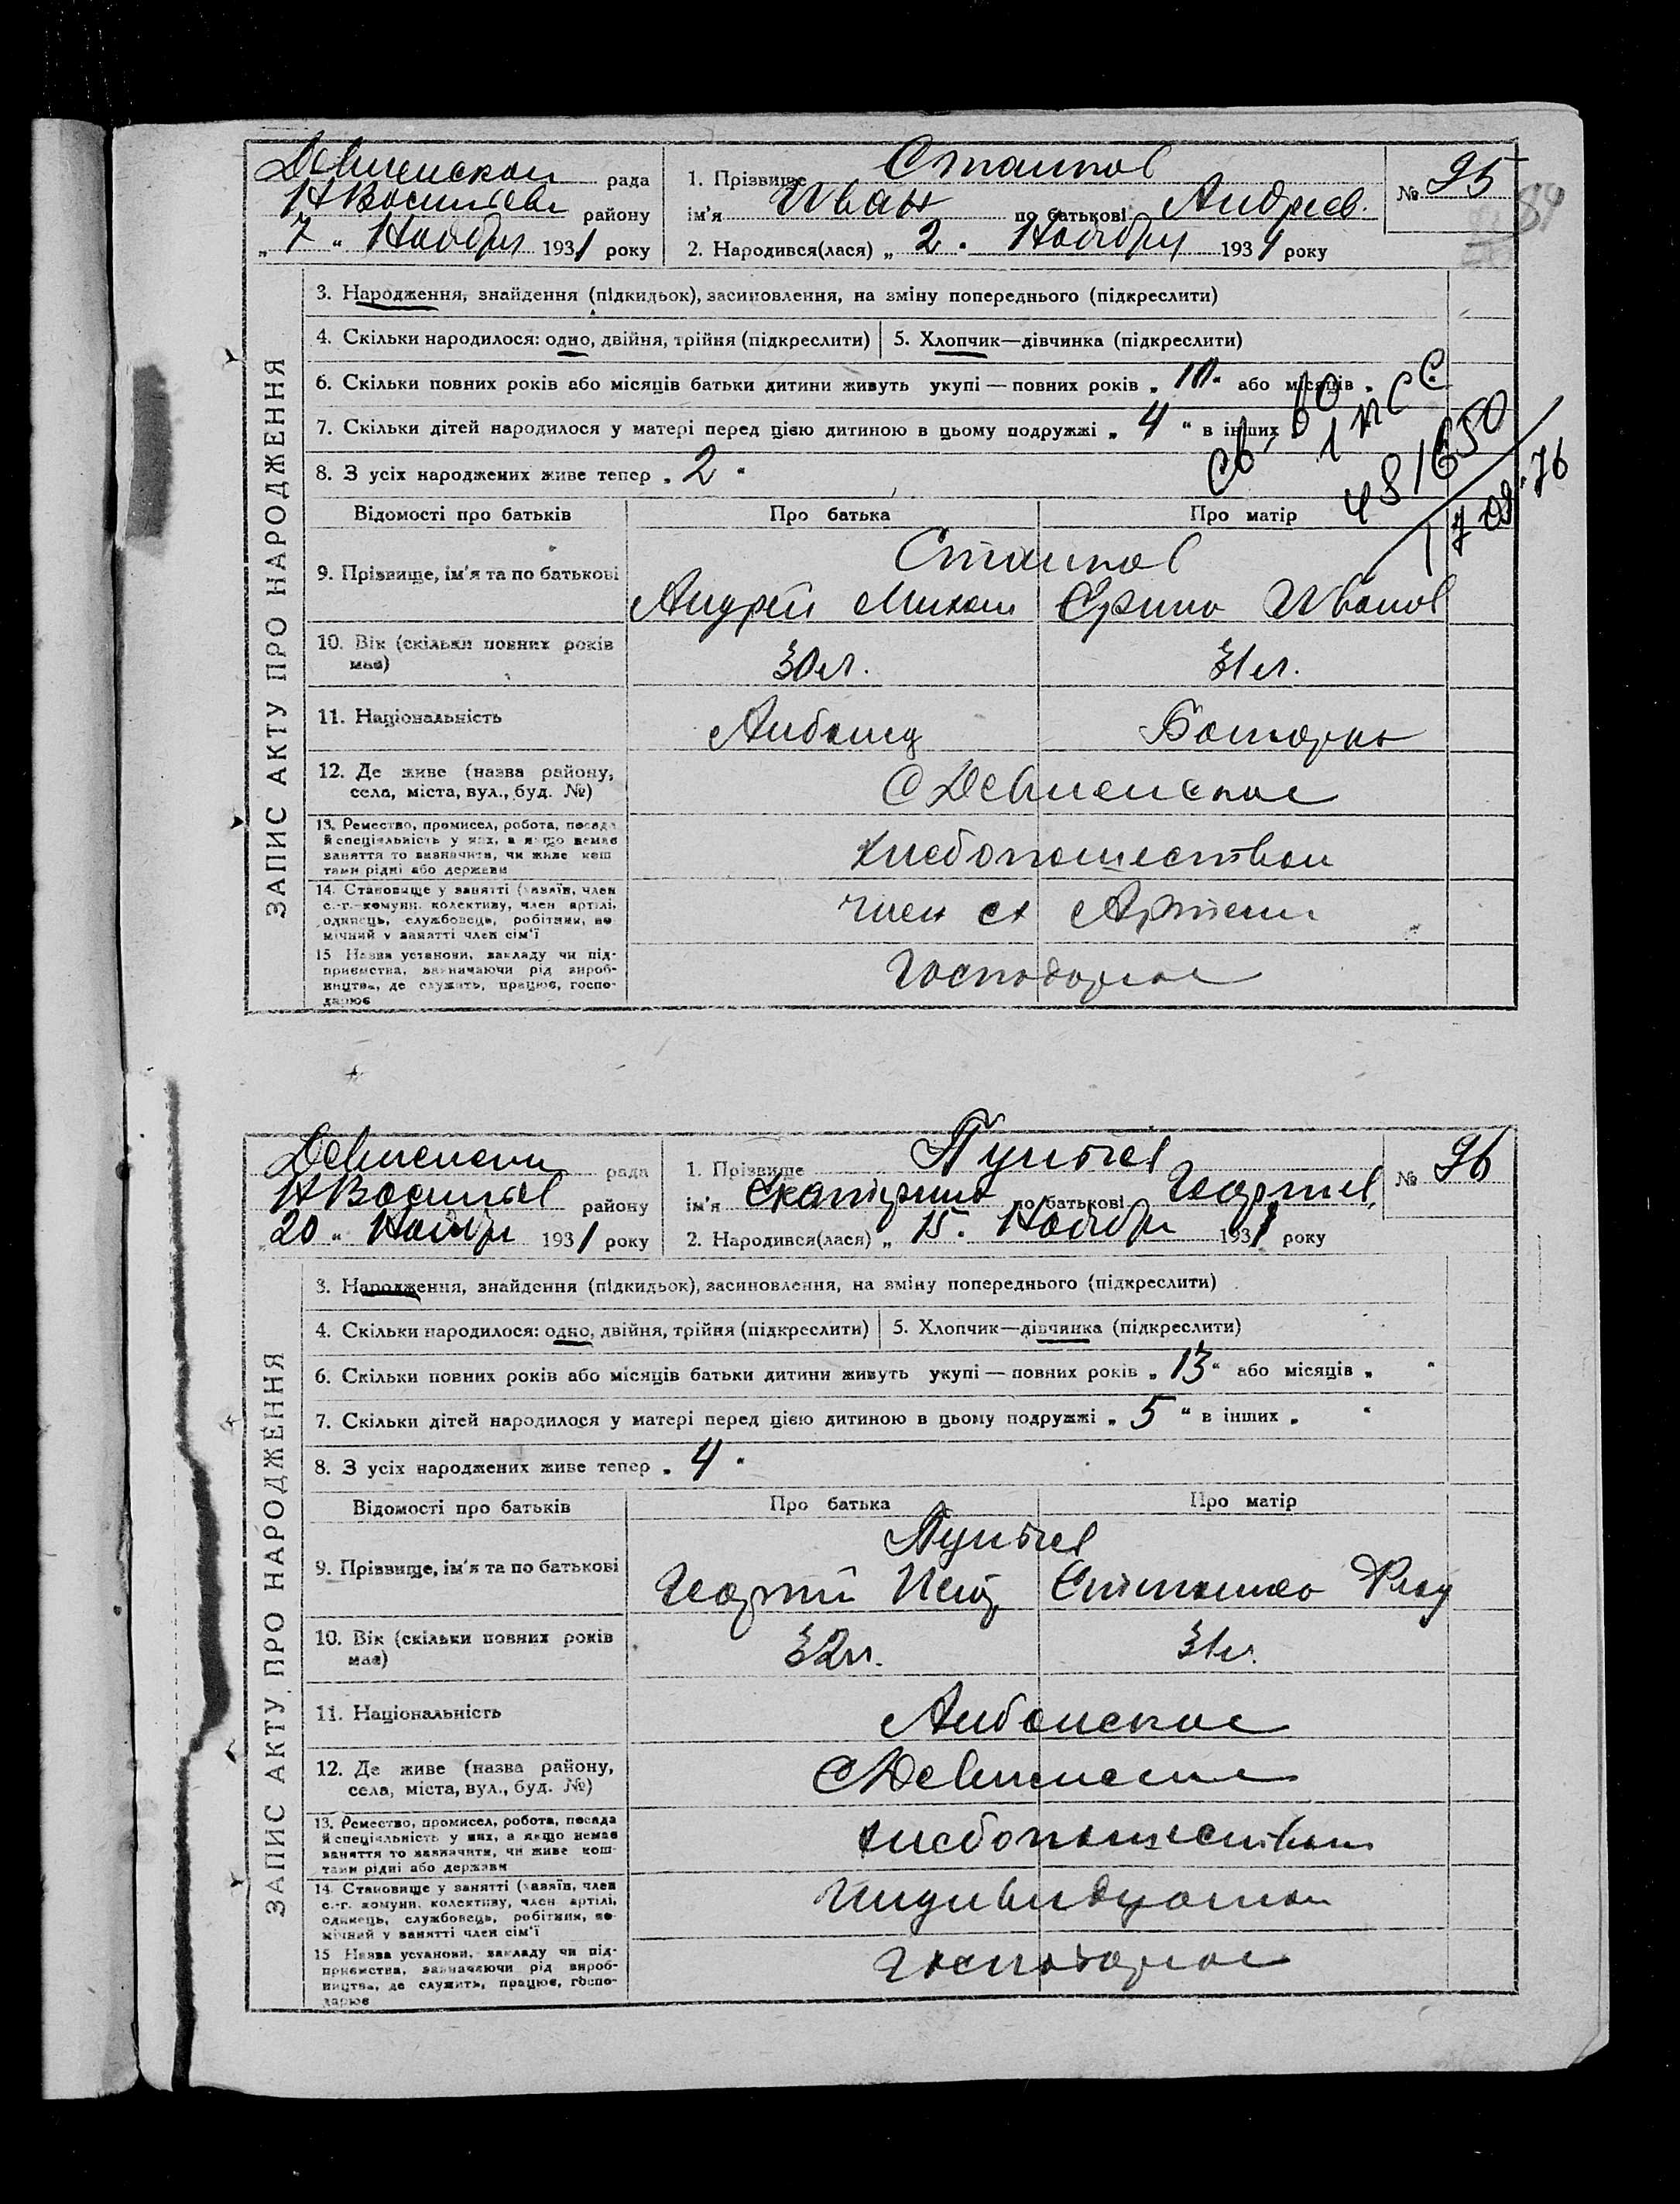 Девненской рада
Н Васильевк району
„ 7 “ Ноября 1931 року
1. Прізвище Статов
ім'я Иван по батькові Андреев.
2. Народився(лася) „ 2 “ Ноября 1931 року
№ 95
84
ЗАПИС АКТУ ПРО НАРОДЖЕННЯ
3. Народження, знайдення (підкидьок), засиновлення, на зміну попереднього (підкреслити)
4. Скільки народилося: одно, двійня, трійня (підкреслити)
5. Хлопчик—дівчинка (підкреслити)
6. Скільки повних років або місяців батьки дитини живуть укупі — повних років „ 10 “ або місяців „
7. Скільки дітей народилося у матері перед цією дитиною в цьому подружжі „ 4 “ в інших
8. З усіх народжених живе тепер „ 2 “
481650
Відомості про батьків Про батька Про матір
9. Прізвище, ім'я та по батькові
Андрей Михал Ирина Иванов
10. Вік (скільки повних років має) 30 л. 31 л.
11. Національність Албанец Болгарка
12. Де живе (назва району, села, міста, вул., буд. №)
С Девненское
13. Ремество, промисел, робота, посада й спеціяльність у них, а якщо немає заняття то визначити, чи живе коштами рідні або держави
хлебопашеством
14. Становище у занятті (хазяїн, член с.-г. комуни, колективу, член артілі, одинець, службовець, робітник, помічний у занятті член сім'ї
член сх Артели
15 Назва установи, закладу чи підприємства, зазначаючи рід виробництва, де служить, працює, господарює
Господарює
Девненской рада
Н Васильев району
„ 20 “ Ноября 1931 року
1. Прізвище
ім'я Екатерина по батькові Георгиев.
2. Народився(лася) „ 15 “ Ноября 1931 року
№ 96
ЗАПИС АКТУ ПРО НАРОДЖЕННЯ
3. Народження, знайдення (підкидьок), засиновлення, на зміну попереднього (підкреслити)
4. Скільки народилося: одно, двійня, трійня (підкреслити)
5. Хлопчик—дівчинка (підкреслити)
6. Скільки повних років або місяців батьки дитини живуть укупі — повних років „ 13 “ або місяців „ “
7. Скільки дітей народилося у матері перед цією дитиною в цьому подружжі „ 5 “ в інших „ “
8. З усіх народжених живе тепер „ 4 “
Відомості про батьків Про батька Про матір
9. Прізвище, ім'я та по батькові
Георгий
10. Вік (скільки повних років має) 32 л. 31 л.
11. Національність Албанское
12. Де живе (назва району, села, міста, вул., буд. №)
С Девненское
13. Ремество, промисел, робота, посада й спеціяльність у них, а якщо немає заняття то зазначити, чи живе коштами рідні або держави
хлебопашеством
14. Становище у занятті (хазяїн, член с.-г. комуни, колективу, член артілі, одинець, службовець, робітник, помічний у занятті член сім'ї
Индивидуальном
15 Назва установи, закладу чи підприємства, зазначаючи рід виробництва, де служить, працює, господарює
Господарює